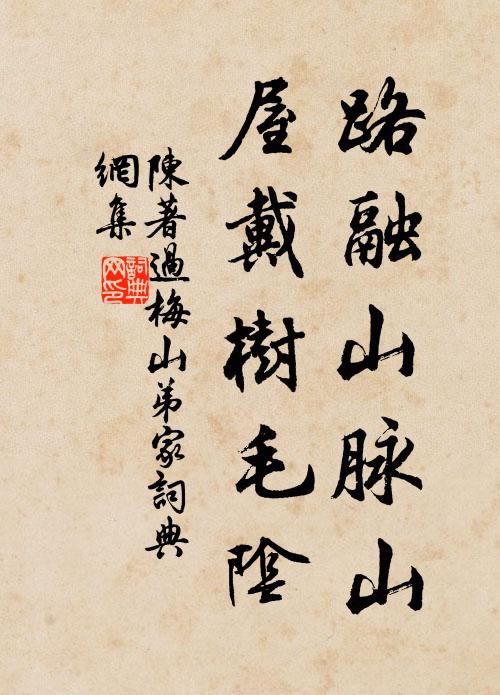 路融山脉山
屋戴樹毛陰
陳著過梅山弟家詞典
網集
詞典
网印